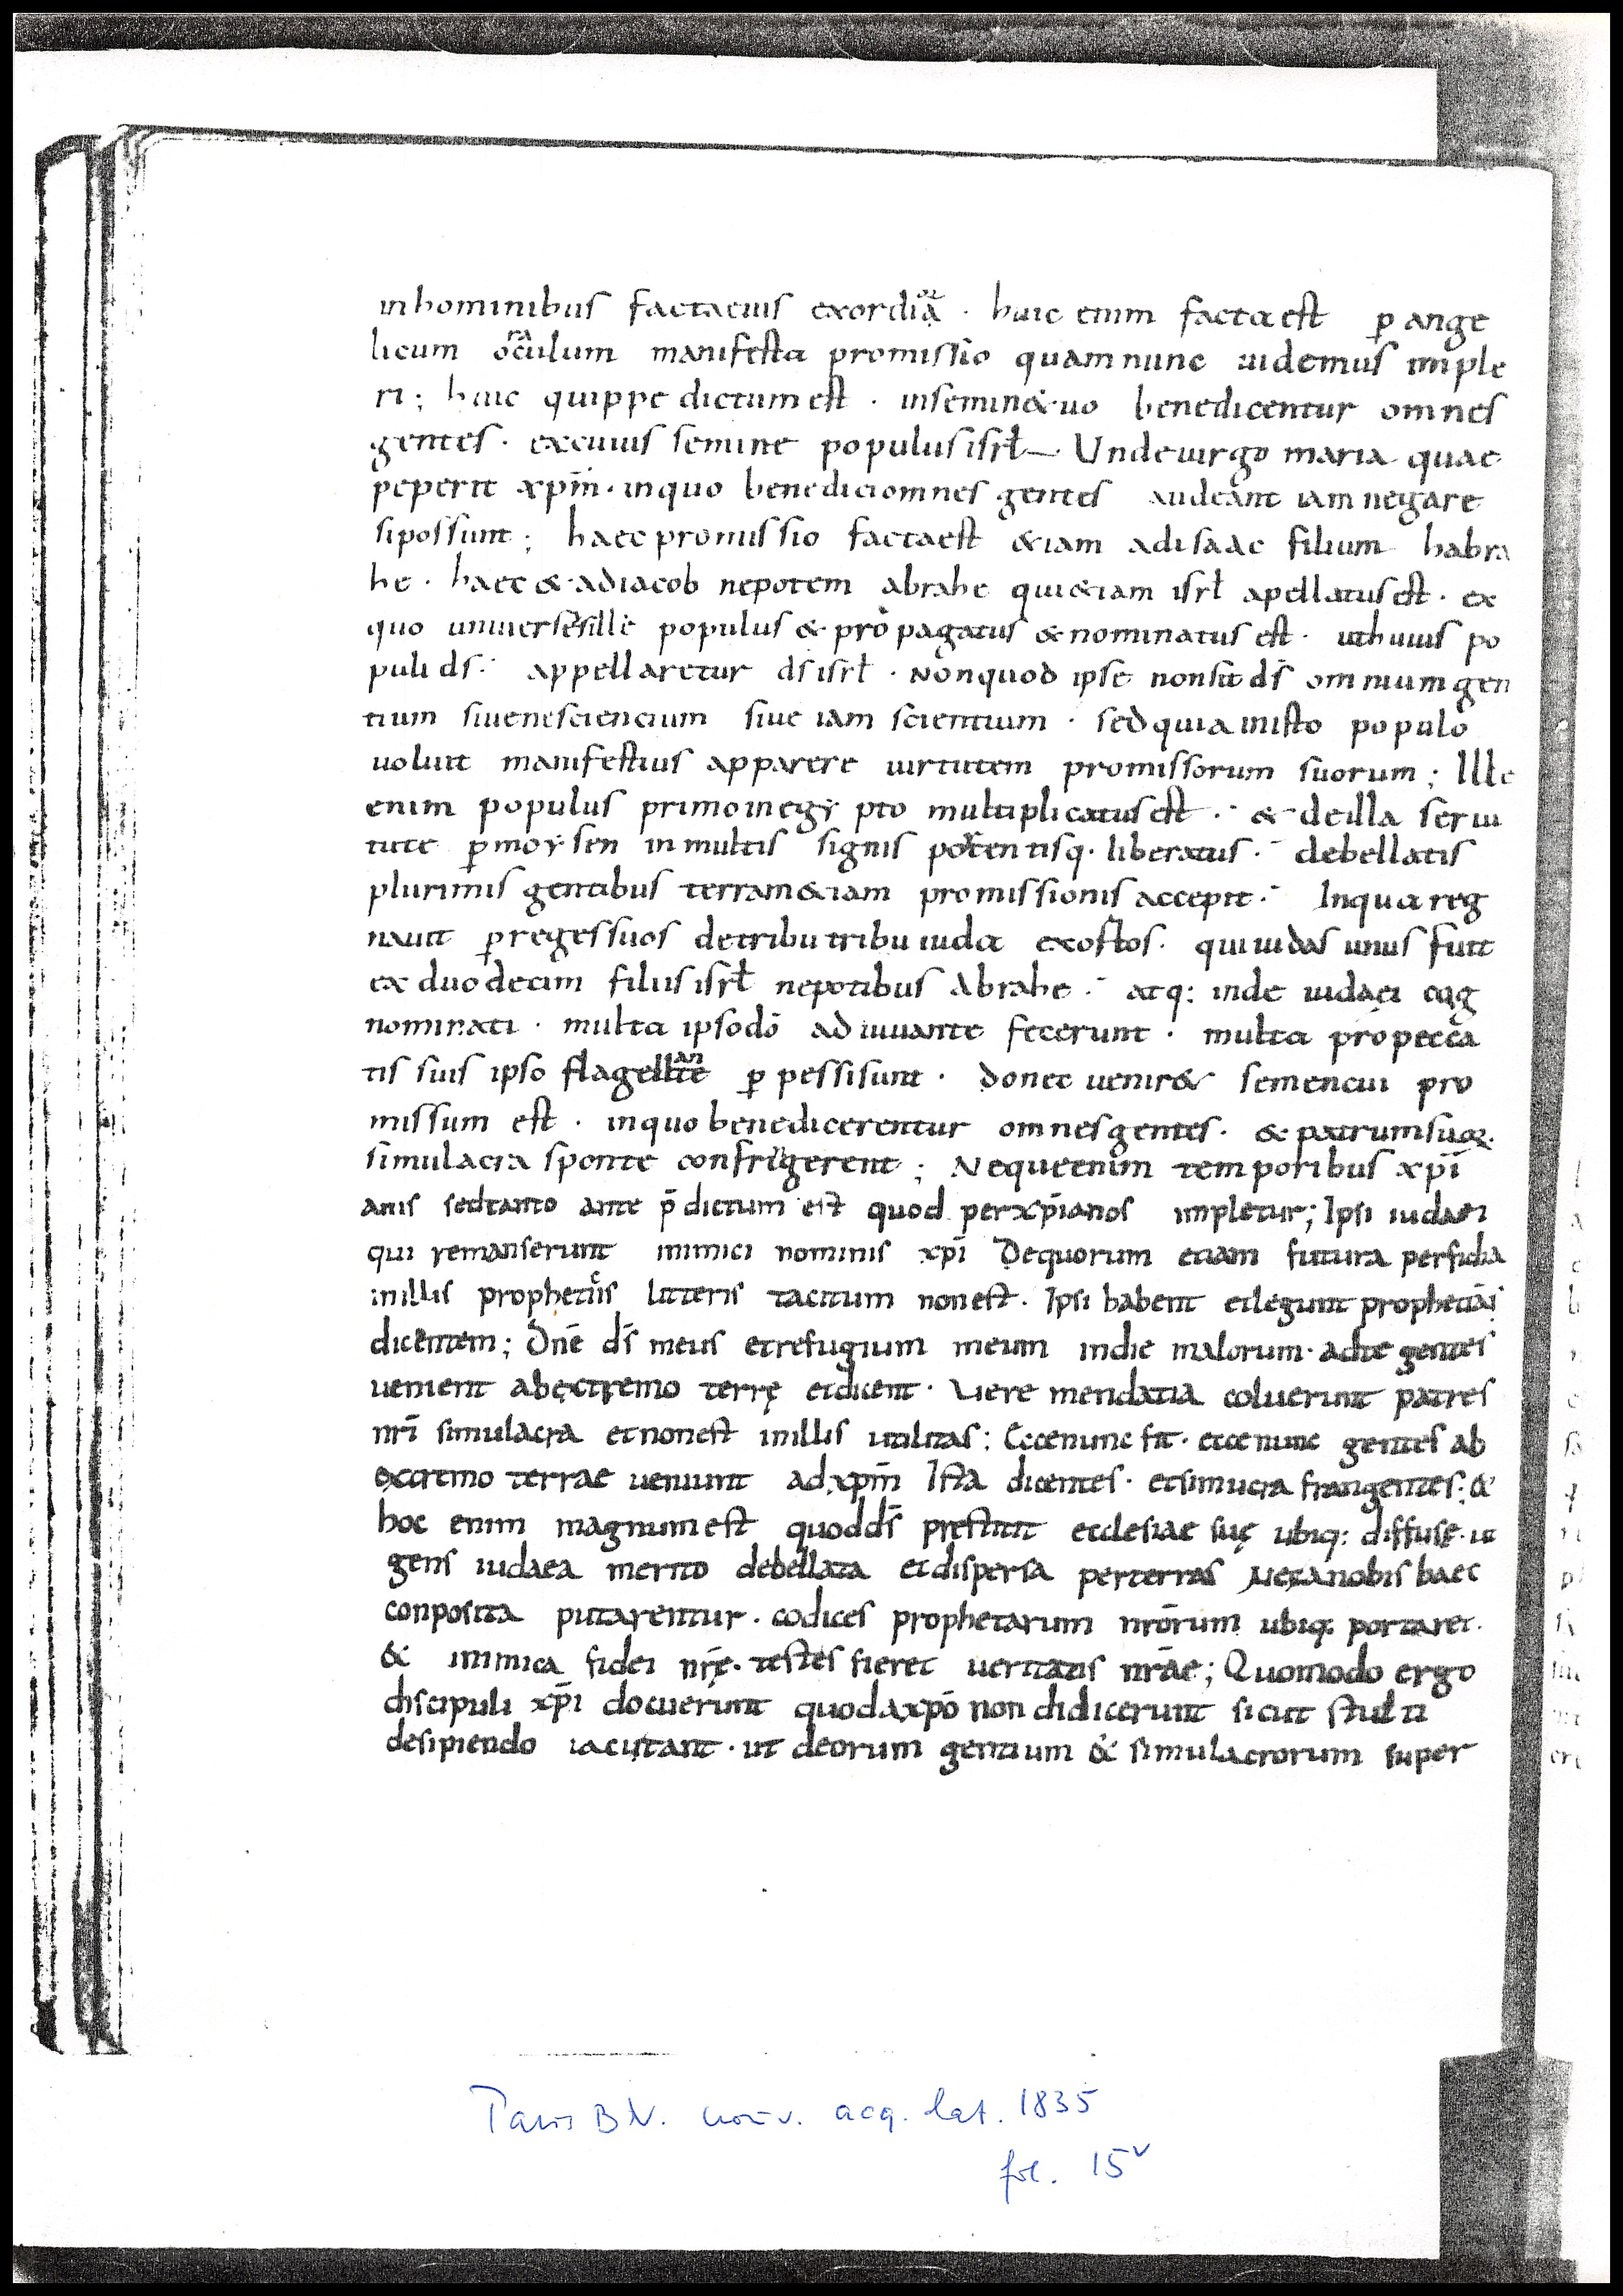 inhominibus factaeius exordia᷑ · huic enim facta est ꝑ ange
licum oraculum manifesta promissio quamnunc uidemus imple
ri; huic quippe dictum est · insemin&uo benedicentur omnes
gentes · excuius semine populus isrł— Undeuirgo maria quae
peperit xp̄m · inquo benediciomnes gentes audeant iam negare
sipossunt; haec promissio factaest &iam adisaac filium habra
he · haec & adiacob nepotem abrahe qui&iam isrł apellatus est · ex
quo uniuersus ille populus & propagatus & nominatus est · uthuius po
puli ds̄ appellaretur ds̄ isrł · Nonquod ipse nonsit ds̄ omnium gen
tium siuenesciencium siue iam scientium · sed quia inisto populo
uoluit manifestius apparere uirtutem promissorum suorum; Ille
enim populus primo inegypto multiplicatus est · & deilla serui
tute ꝑmoysen inmultis signis potentisq· liberatus · debellatis
plurimis gentibus terram&iam promissionis accepit · Inqua reg
nauit ꝑregessuos detribu tribu iuda exostos · qui iudas unus fuit
ex duodecim filiis isrł nepotibus Abrahe · atq: inde iudaei cqg
nominati · multa ipsodō adiuuante fecerunt · multa propecca
tis suis ipso flagellante ꝑpessisunt · donec uenir& semencui pro
missum est · inquo benedicerentur omnes gentes · & patrumsuoꝝ
simulacra sponte confringerent; Nequeenim temporibus xp̄i
anis sedtanto ante p̄dictum est quod perxp̄ianos impletur; Ipsi iudaei
qui remanserunt inimici nominis xp̄i Dequorum etiam futura perfidia
inillis propheticis litteris tacitum nonest · Ipsi habent etlegunt prophetias
dicentem; Dn̄e ds̄ meus etrefugium meum indie malorum · adte gentes
uenient abęxtremo terrę etdicent · Uere mendatia coluerunt patres
nr̄i simulacra etnonest inillis utilitas; Eccenunc fit · ecce nunc gentes ab
extremo terrae ueniunt ad xp̄m Ista dicentes · etsimucra frangentes; &
hoc enim magnum est quodds̄ prestitit ecclesiae suę ubiq: diffuse · ut
gens iudaea merito debellata etdispersa perterras Neqanobis haec
conposita putarentur · codices prophetarum nr̄orum ubiq: portaret ·
& inimica fidei nr̄ę · testes fieret ueritatis nr̄ae; Quomodo ergo
discipuli xp̄i docuerunt quodaxp̄o non didicerunt sicut stulti
desipiendo iacutant · ut deorum gentium & simulacrorum super
Paris B N. nouv. acq. lat. 1835
fol. 15v